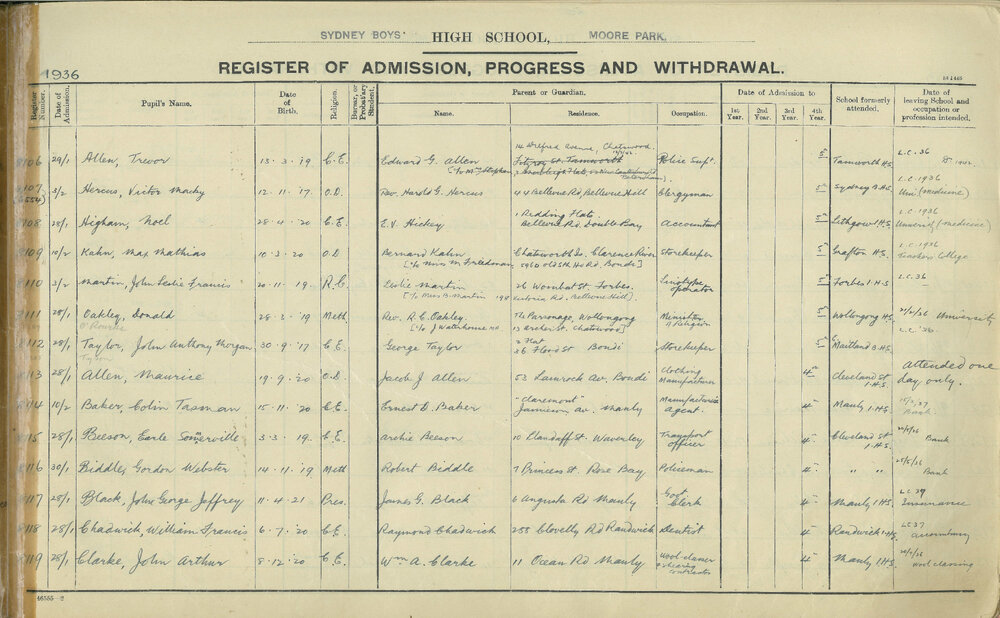 SYDNEY BOYS' HIGH SCHOOL, MOORE PARK.
1936 REGISTER OF ADMISSION, PROGRESS AND WITHDRAWAL.
Register Number. Date of Admission. Pupil's Name. Date of Birth. Religion. Bursar, or Probationary Student. Parent or Guardian. Name. Residence. Occupation. Date of Admission to 1st Year. 2nd Year. 3rd Year. 4th Year. School formerly attended. Date of leaving School and occupation or profession intended.
14 Wilfred Avenue, Chatswood.
8106 29/1 Allen, Trevor 13.3.'19 C.E. Edward G. Allen Fitzroy St. Tamworth Police Supt. 5 Tamworth H.S. L.C. 36
8107 3/2 Hercus, Victor Macky 12.11.'17 O.D. Rev. Harold G. Hercus 44 Bellevue Rd, Bellevue Hill Clergyman 5 Sydney B.H.S. L.C. 1936 Uni (medicine)
(6554)
8108 28/1 Higham, Noel 28.4.20 C.E. E.V. Hickey 1 Redding Flats. Bellevue Rd. Double Bay Accountant 5 Lithgow I.H.S. L.C. 1936 University (medicine)
8109 10/2 Kahn, Max Mathias 10.3.20 O.D Bernard Kahn Chatsworth Is. Clarence River Storekeeper 5 Grafton H.S. L.C. 1936 Teachers College
[c/o Miss M. Freedman, 396 Old Sth Hd Rd. Bondi]
8110 3/2 Martin, John Leslie Francis 20.11.19 R.C. Leslie Martin 26 Wombat St. Forbes. Linotype operator 5 Forbes I.H.S L.C. 36
[c/o Mrs B. Martin 198 Victoria Rd, Bellevue Hill).
8111 28/1 Oakley, Donald 25.3.'19 Meth Rev. R.C. Oakley. The Parsonage, Wollongong Minister of Religion 5 Wollongong H.S. University
O'Rourke [c/o J Waterhouse 13 Archer St. Chatswood] L.C. '36.
8112 28/1 Taylor, John Anthony Morgan 30.9.'17 C.E. George Taylor 2 Flat 36 Flood St Bondi Storekeeper 5 Maitland B.H.S.
8113 28/1 Allen, Maurice 19.9.'20 O.D. Jacob J Allen 53 Lamrock Av. Bondi Clothing Manufacturer 4 Cleveland St I.H.S. Attended one day only.
8114 10/2 Baker, Colin Tasman 15.11.'20 C.E. Ernest D. Baker "Claremont" Jamieson Av. Manly Manufacturers Agent. 4 Manly I.H.S. Bank
8115 28/1 Beeson, Earle Somerville 3.3.'19. C.E. Archie Beeson 10 Llandaff St. Waverley Transport officer 4 Cleveland St I.H.S. Bank
8116 30/1 Biddle, Gordon Webster 14.11.'19 Meth Robert Biddle 7 Princess St. Rose Bay Policeman 4 " " Bank
8117 28/1 Black, John George Jeffrey 11.4.21 Pres. James G. Black 6 Augusta Rd Manly Govt Clerk 4 Manly I.H.S. L.C. 39 Insurance
8118 28/1 Chadwick, William Francis 6.7.'20 C.E. Raymond Chadwick 258 Clovelly Rd Randwick Dentist 4 Randwick I.H.S. LC 37 Accountancy
8119 28/1 Clarke, John Arthur 8.12.20 C.E. Wm A. Clarke 11 Ocean Rd Manly Wool classer & shearing contractor 4 Manly I.H.S. Wool classing
46555—2